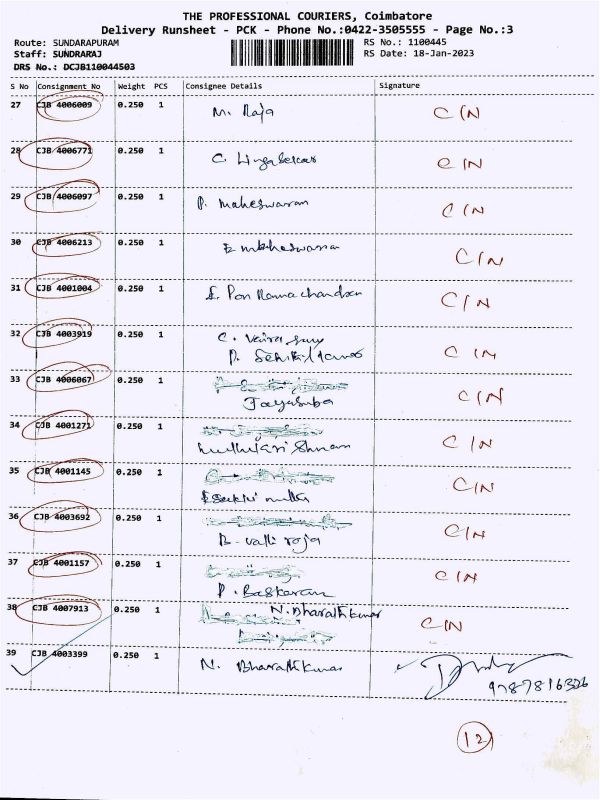 THE PROFESSIONAL COURIERS, Coimbatore
Delivery Runsheet - PCK - Phone No.:0422-3505555 - Page No.:3
Route: SUNDARAPURAM RS No.: 1100445
Staff: SUNDRARAJ RS Date: 18-Jan-2023
DRS No.: DCJB110044503
S No Consignment No Weight PCS Consignee Details Signature
27 CJB 4006009 0.250 1 M. Raja C/N
28 CJB 4006771 0.250 1 C. C/N
29 CJB 4006097 0.250 1 P. Maheswaran C/N
30 CJB 4006213 0.250 1 C/N
31 CJB 4001004 0.250 1 Pon Ramachandran C/N
32 CJB 4003919 0.250 1 C. Vaira C/N
P.
33 CJB 4006067 0.250 1 C/N
Jayasuba
34 CJB 4001271 0.250 1 C/N
35 CJB 4001145 0.250 1 C/N
36 CJB 4003692 0.250 1 C/N
B. Valli roja
37 CJB 4001157 0.250 1 C/N
P. Baskaran
38 CJB 4007913 0.250 1 N. Bharathkumar C/N
39 CJB 4003399 0.250 1 N. Bharathkumar
9787816326
12